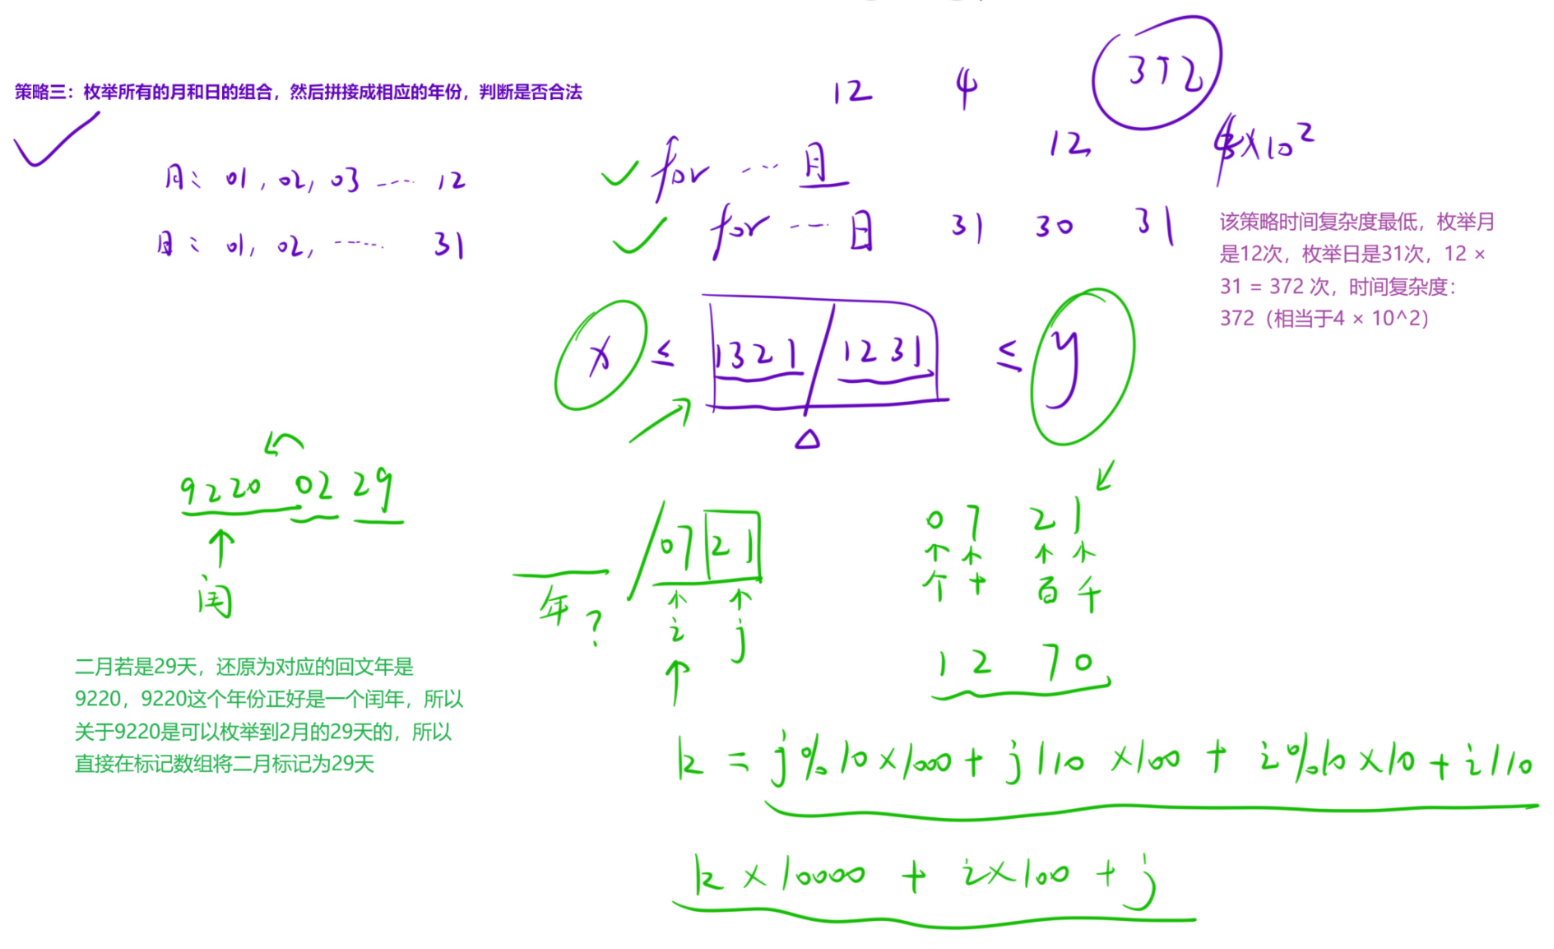 策略三：枚举所有的月和日的组合，然后拼接成相应的年份，判断是否合法
12 4 372
12 4×10^2
月： 01, 02, 03 ---- 12
日： 01, 02, ----- 31
for --- 月
for --- 日 31 30 31
该策略时间复杂度最低，枚举月
是12次，枚举日是31次，12 ×
31 = 372 次，时间复杂度：
372（相当于4 × 10^2）
x ≤ 1321 / 1231 ≤ y
9220 02 29
闰
二月若是29天，还原为对应的回文年是
9220，9220这个年份正好是一个闰年，所以
关于9220是可以枚举到2月的29天的，所以
直接在标记数组将二月标记为29天
/ 07 21
年？
i j
0 7 2 1
个 十 百 千
1 2 7 0
k = j%10×1000 + j/10 ×100 + i%10×10 + i/10
k×10000 + i×100 + j